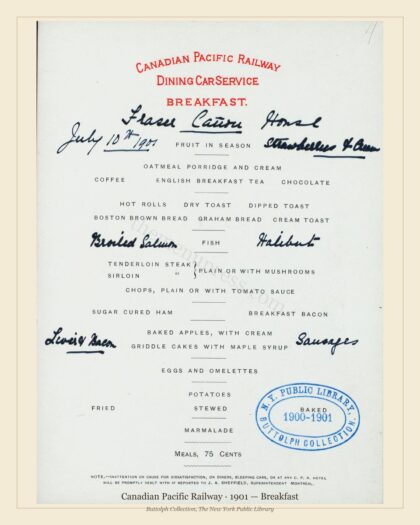 CANADIAN PACIFIC RAILWAY
DINING CAR SERVICE
BREAKFAST.
Fraser Cañon House
July 10th 1901 FRUIT IN SEASON Strawberries & Cream
OATMEAL PORRIDGE AND CREAM
COFFEE ENGLISH BREAKFAST TEA CHOCOLATE
HOT ROLLS DRY TOAST DIPPED TOAST
BOSTON BROWN BREAD GRAHAM BREAD CREAM TOAST
Broiled Salmon FISH Halibut
TENDERLOIN STEAK
SIRLOIN " } PLAIN OR WITH MUSHROOMS
CHOPS, PLAIN OR WITH TOMATO SAUCE
SUGAR CURED HAM BREAKFAST BACON
BAKED APPLES, WITH CREAM
Liver & Bacon GRIDDLE CAKES WITH MAPLE SYRUP Sausages
EGGS AND OMELETTES
POTATOES
FRIED STEWED BAKED
N. Y. PUBLIC LIBRARY,
1900-1901
BUTTOLPH COLLECTION.
MARMALADE
MEALS, 75 CENTS
NOTE.—INATTENTION OR CAUSE FOR DISSATISFACTION, ON DINERS, SLEEPING CARS, OR AT ANY C. P. R. HOTEL
WILL BE PROMPTLY DEALT WITH IF REPORTED TO J. A. SHEFFIELD, SUPERINTENDENT MONTREAL.
Canadian Pacific Railway - 1901 — Breakfast
Buttolph Collection, The New York Public Library